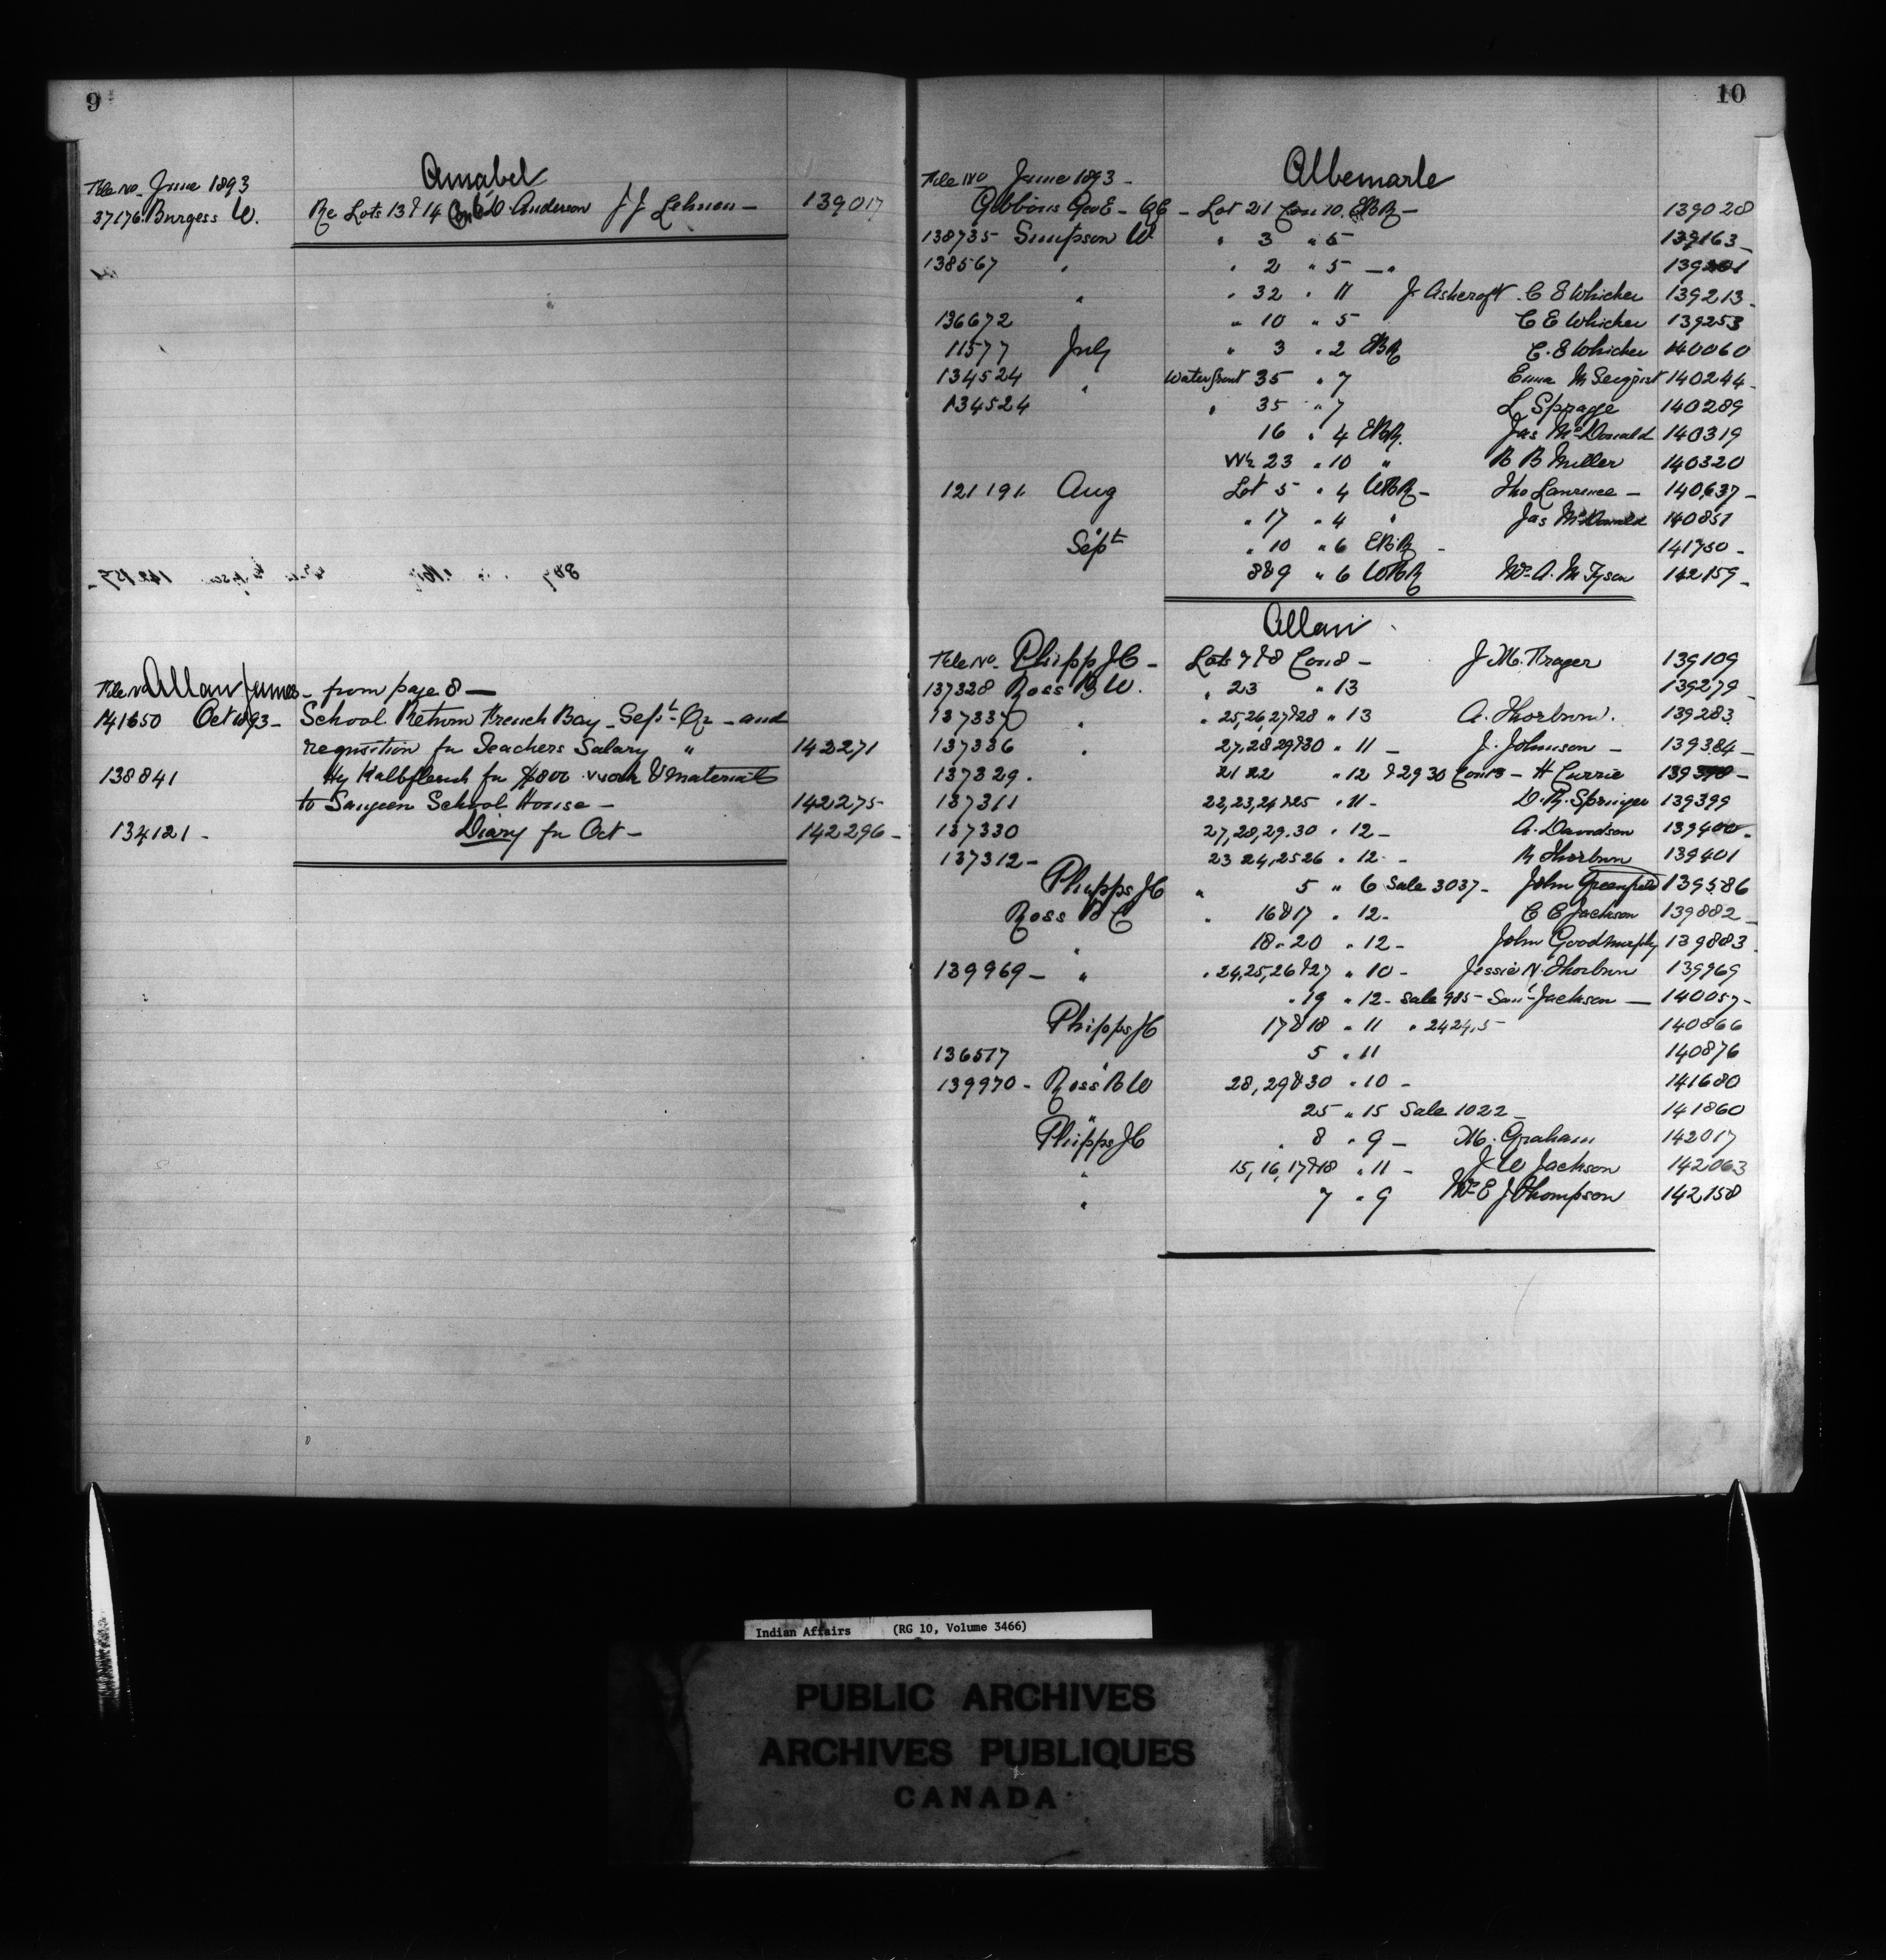 9
Amabel
File No. June 1893
37176 Burgess W. Re Lots 13 & 14 Con 6 D. Anderson J J Lehnen — 139017
File No Allan James — from page 8 —
141650 Oct 1893 — School Return French Bay — Sept. Qr — and
requisition for Teachers Salary " 142271
138841 Hy Kalbfleisch for $800 work & materials
to Saugeen School House — 142275
134121 — Diary for Oct — 142296 —
10
Albemarle
File No June 1893 —
Gibbons Geo E — QC — Lot 21 Con 10. EBR — 139028
138735 Simpson W " 3 " 5 139163 —
138567 " " 2 " 5 — "
" " 32 " 11 J. Ashcroft . C E Whicher 139213 —
136672 " 10 " 5 C E Whicher 139253
11577 July " 3 " 2 EBR C. E Whicher 140060
134524 " Waterfront 35 " 7 Emma M Seegrist 140244 —
134524 " 35 " 7 L Sprage 140289
16 " 4 EBR. Jas McDonald 140319
W½ 23 " 10 " R B Miller 140320
121191. Aug Lot 5 " 4 WBR — Tho Lawrence — 140637 —
" 17 " 4 " Jas McDonald 140851
Sept " 10 " 6 EBR — 141750 —
8&9 " 6 WBR Mrs A. M Tyson 142159 —
Allan
File No. Phipps J C — Lots 7 & 8 Con 8 — J M. Trager 139109
137328 Ross B W. " 23 " 13 139279 —
137337 " " 25, 26, 27 & 28 " 13 A. Thorburn. 139283
137336 " 27, 28 29 & 30 " 11 — J. Johnson — 139384 —
137329. 21 22 " 12 & 29 30 Con 13 — H Currie 139398 —
137311 22, 23, 24 & 25 " 11 — D. R. Springer 139399
137330 27, 28, 29. 30 " 12 — A. Davidson 139400 —
137312 — 23 24, 25 26 " 12 — R Thorburn 139401
Phipps J C " 5 " 6 Sale 3037 — John Greenfield 139586
Ross B C " 16 & 17 " 12 — C C Jackson 139882 —
" 18 " 20 " 12 — John Goodmurphy 139883
139969 — " " 24, 25, 26 & 27 " 10 — Jessie N. Thorburn 139969
" 19 " 12 — Sale 985 — Saml Jackson — 140057 —
Phipps J C 17 & 18 " 11 " 2424.5 140866
136517 " 5 " 11 140876
139970 — Ross B W 28, 29 & 30 " 10 — 141680
" 25 " 15 Sale 1022 — 141860
Phipps J C " 8 " 9 — M. Graham 142017
" 15, 16, 17 & 18 " 11 — J W Jackson 142063
" 7 " 9 Mrs E J Thompson 142158
Indian Affairs (RG 10, Volume 3466)
PUBLIC ARCHIVES
ARCHIVES PUBLIQUES
CANADA